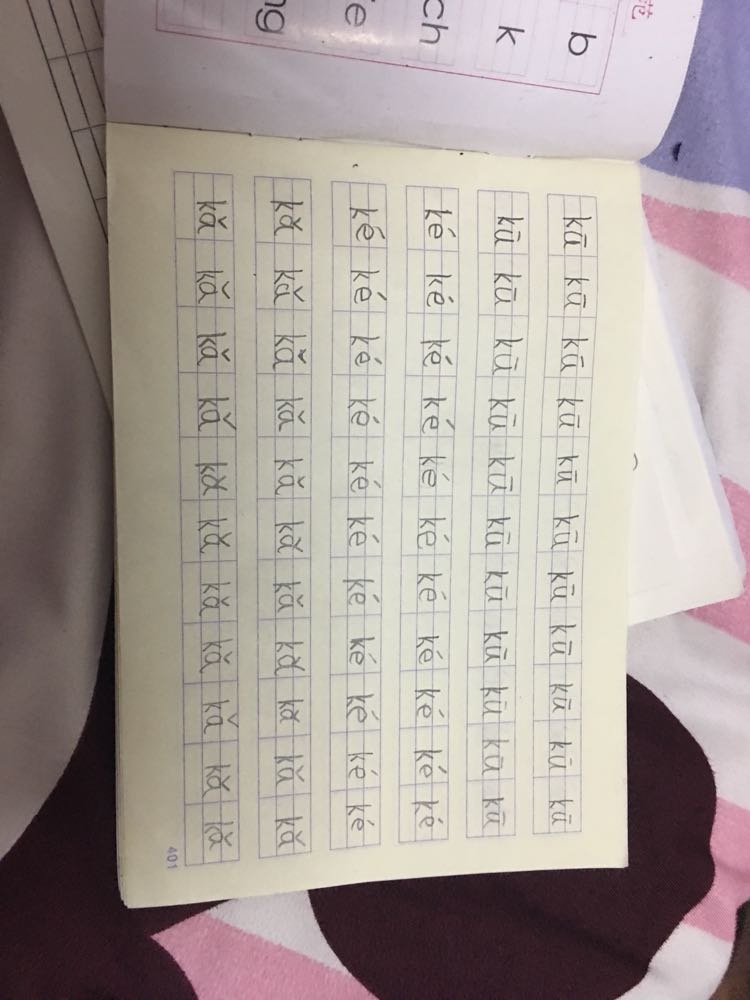 b
k
ch
kū kū kū kū kū kū kū kū kū kū kū
kū kū kū kū kū kū kū kū kū kū kū
ké ké ké ké ké ké ké ké ké ké ké
ké ké ké ké ké ké ké ké ké ké ké
kǎ kǎ kǎ kǎ kǎ kǎ kǎ kǎ kǎ kǎ kǎ
kǎ kǎ kǎ kǎ kǎ kǎ kǎ kǎ kǎ kǎ kǎ
401